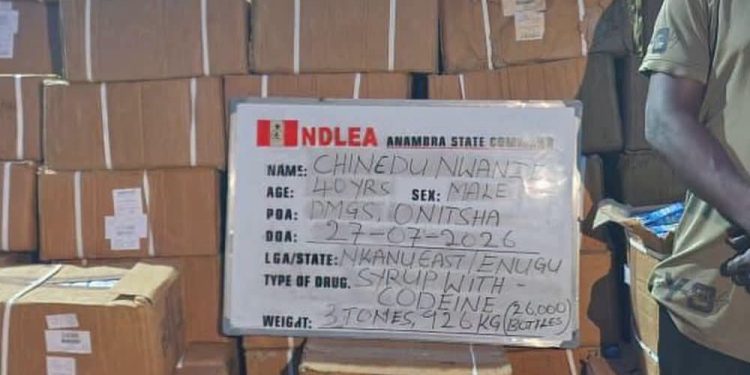 NDLEA ANAMBRA STATE COMMAND
NAME: CHINEDU
AGE: 40YRS SEX: MALE
POA: DMGS, ONITSHA
DOA: 27-07-2026
LGA/STATE: NKANU EAST/ENUGU
TYPE OF DRUG. SYRUP WITH -
CODEINE (26,000)
WEIGHT: 3 TONES, 926 KG (BOTTLES)